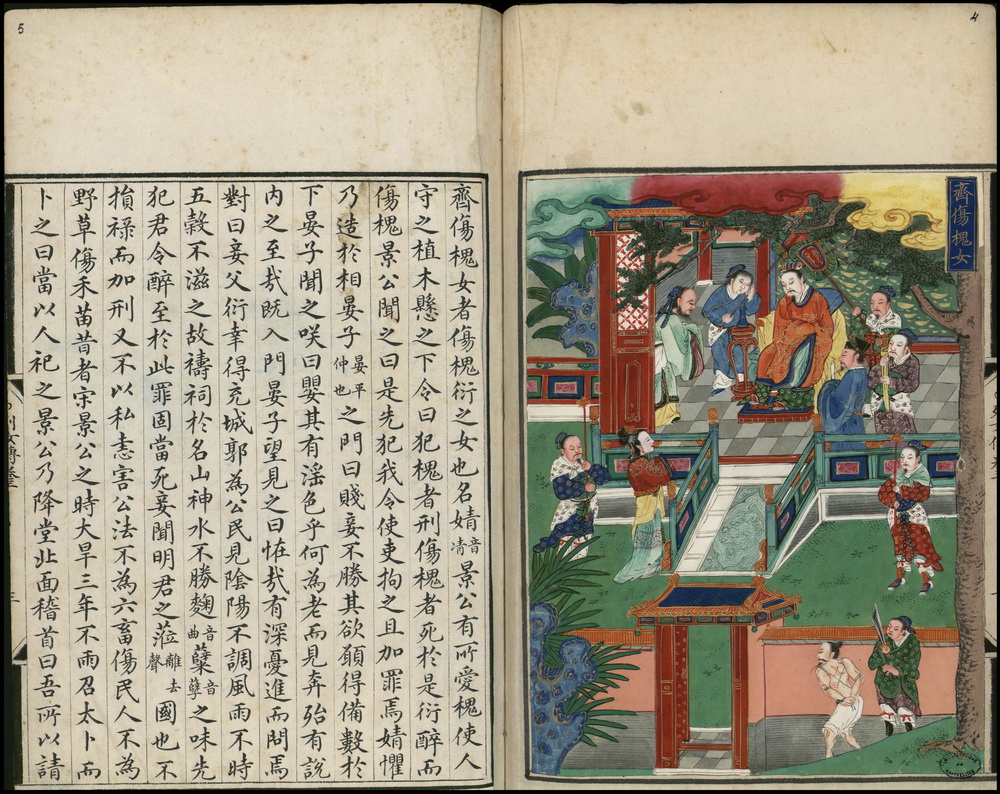 4
齊傷槐女
5
齊傷槐女者傷槐衍之女也名婧音清景公有所愛槐使人
守之植木懸之下令曰犯槐者刑傷槐者死於是衍醉而
傷槐景公聞之曰是先犯我令使吏拘之且加罪焉婧懼
乃造於相晏子晏平仲也之門曰賤妾不勝其欲願得備數於
下晏子聞之咲曰嬰其有滛色乎何為老而見奔殆有說
內之至哉既入門晏子望見之曰恠哉有深憂進而問焉
對曰妾父衍幸得充城郭為公民見陰陽不調風雨不時
五穀不滋之故禱祠於名山神水不勝麴音曲糵音孽之味先
犯君令醉至於此罪固當死妾聞明君之蒞離去聲國也不
損祿而加刑又不以私恚害公法不為六畜傷民人不為
野草傷禾苗昔者宋景公之時大旱三年不雨召太卜而
卜之曰當以人祀之景公乃降堂北面稽首曰吾所以請